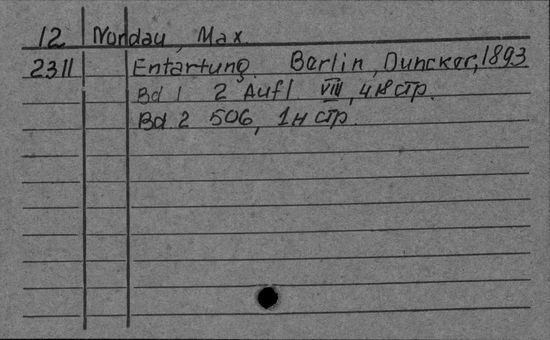 12 Nordau, Max.
2311 Entartung. Berlin, Duncker, 1893
Bd 1 2 Aufl VIII, 418 стр.
Bd 2 506, 1н стр.